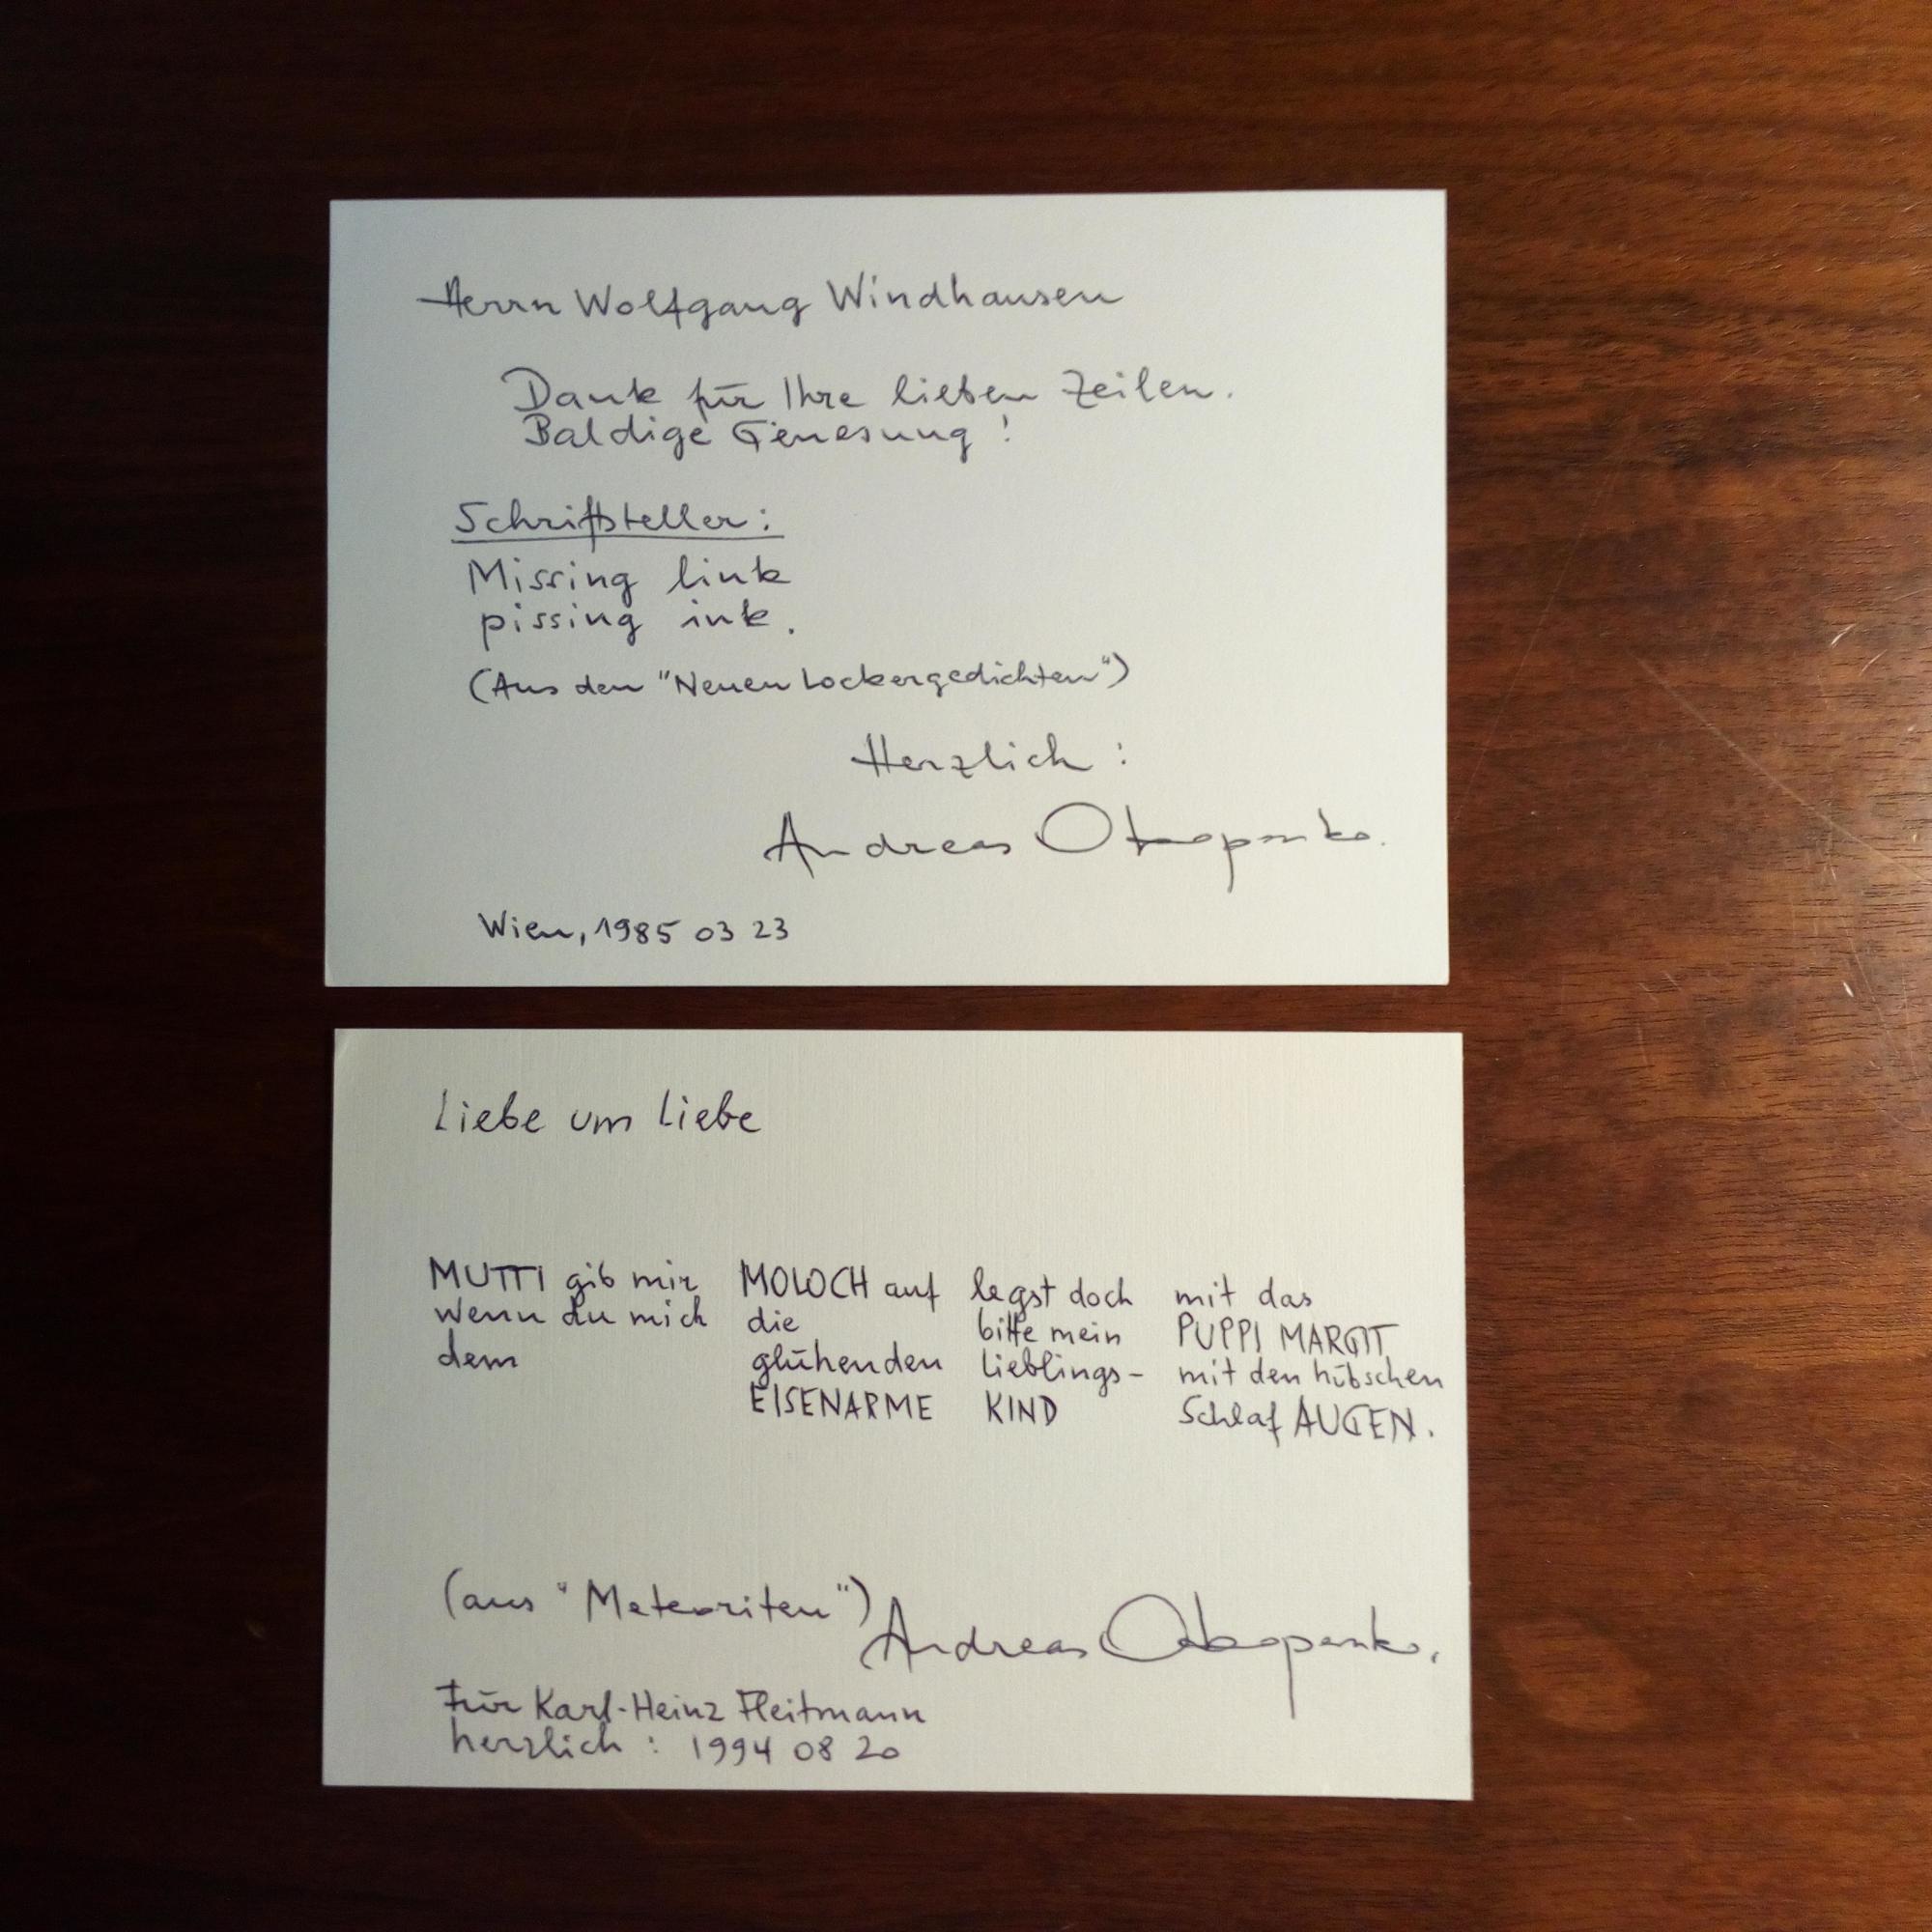 Herrn Wolfgang Windhausen
Dank für Ihre lieben Zeilen.
Baldige Genesung!
Schriftsteller:
Missing link
pissing ink.
(Aus den "Neuen Lockergedichten")
Herzlich:
Andreas Okopenko.
Wien, 1985 03 23
Liebe um Liebe
MUTTI gib mir
wenn du mich
dem
MOLOCH auf
die
glühenden
EISENARME
legst doch
bitte mein
Lieblings-
KIND
mit das
PUPPI MARGIT
mit den hübschen
Schlaf AUGEN.
(aus "Meteoriten")
Andreas Okopenko.
Für Karl-Heinz Fleitmann
herzlich: 1994 08 20